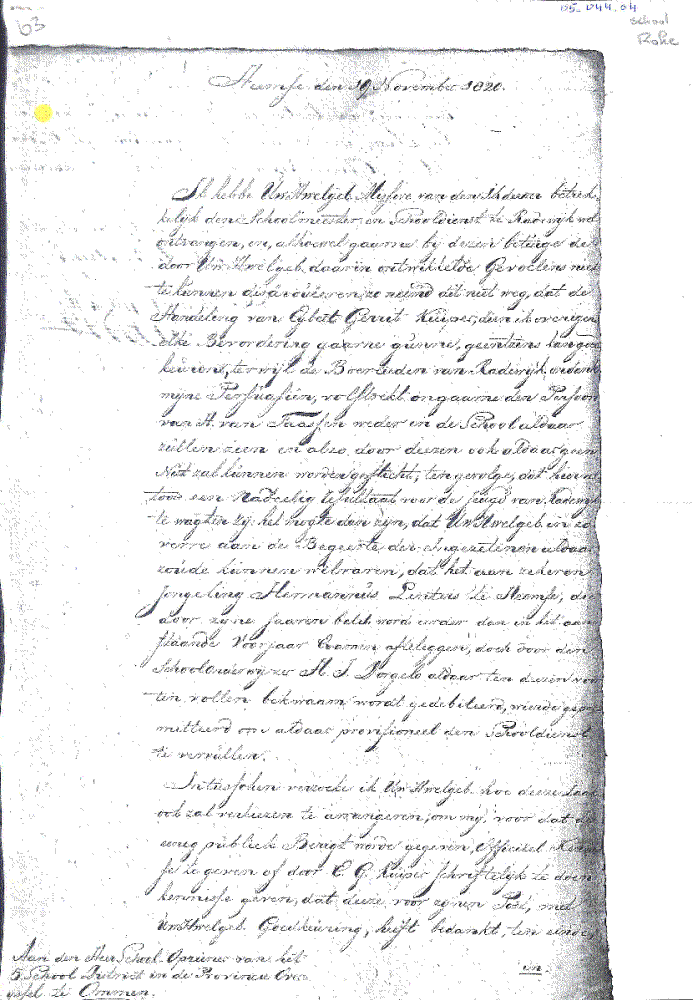 63
05-044.04
school
Rohe
Heemse den 19 November 1820.
Ik hebbe UwWelgeb. Missive van den 14 dezer betrek
kelijk den Schoolmeester en Schooldienst te Radewijk wel
ontvangen, en, alhoewel gaarne bij dezen betuige de
door UwWelgeb. daarin ontwikkelde Gevoelens niet
te kunnen desavoueren, zo neemd dit niet weg, dat de
Handeling van Egbert Gerrit Kuiper, dien ik overigens
elke Bevordering gaarne gunne, geentsins kan goed
keuren, terwijl de Boerluiden van Radewijk,
mijne Persuasien, volstrekt ongaarne den Persoon
van H. van Faassen weder in de School aldaar
zullen zien en alzo door deezen ook aldaar geen
Nut zal kunnen worden gesticht, ten gevolge, dat hier
door een Nadeelig Resultaat voor de jeugd van Radewijk
te wagten zij: het mogte dan zijn, dat UwWelgeb. in zo
verre aan de Begeerte der Ingezetenen aldaar
zoude kunnen wilvaren, dat het aan zekeren
Jongeling Hermannus te Heemse, die
door zijne Jaaren belet word eerder dan in het aan
staande Voorjaar Examen afteleggen, doch door den
Schoolonderwijzer H. J. Borgelo aldaar ten dezen voor
ten vollen bekwaam wordt gedebiteerd, wierde geper
mitteerd om aldaar provisioneel den Schooldienst
te vervullen.
Intusschen verzoeke ik UwWelgeb. hoe deeze Zaak
ook zal verkiezen te arrangeren, om mij, voor dat de
publiek Berigt worde gegeven, Officieel Kennis
se te geven of door E. G. Kuiper schriftelijk te doen
kennisse geven, dat deeze voor zijnen Post, met
UwWelgeb. Goedkeuring, heeft bedankt, ten einde,
en
Aan den Heer School-Opziener van het
5 School District in de Provincie Over
ijssel te Ommen.